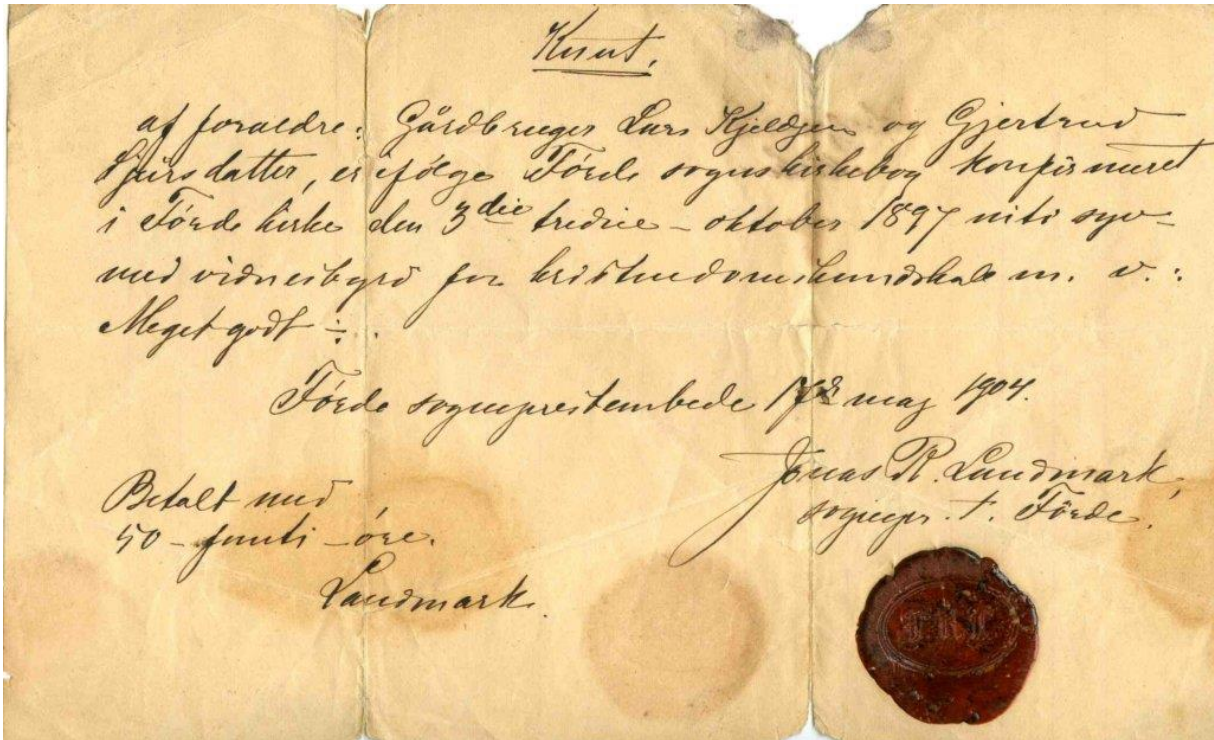 Knut.
af forældre: Gårdbruger Lars Kjeldsen og Gjertrud
Sjursdatter, er ifølge Førde sogns kirkebog konfirmeret
i Førde kirke den 3die tredie - oktober 1897 niti syv -
med vidnesbyrd for kristendomskundskab m. v.:
Meget godt ÷.
Førde sogneprestembede 17de maj 1904.
Jonas R. Landmark,
sognepr. t. Førde.
Betalt med
50 - femti - øre.
Landmark.